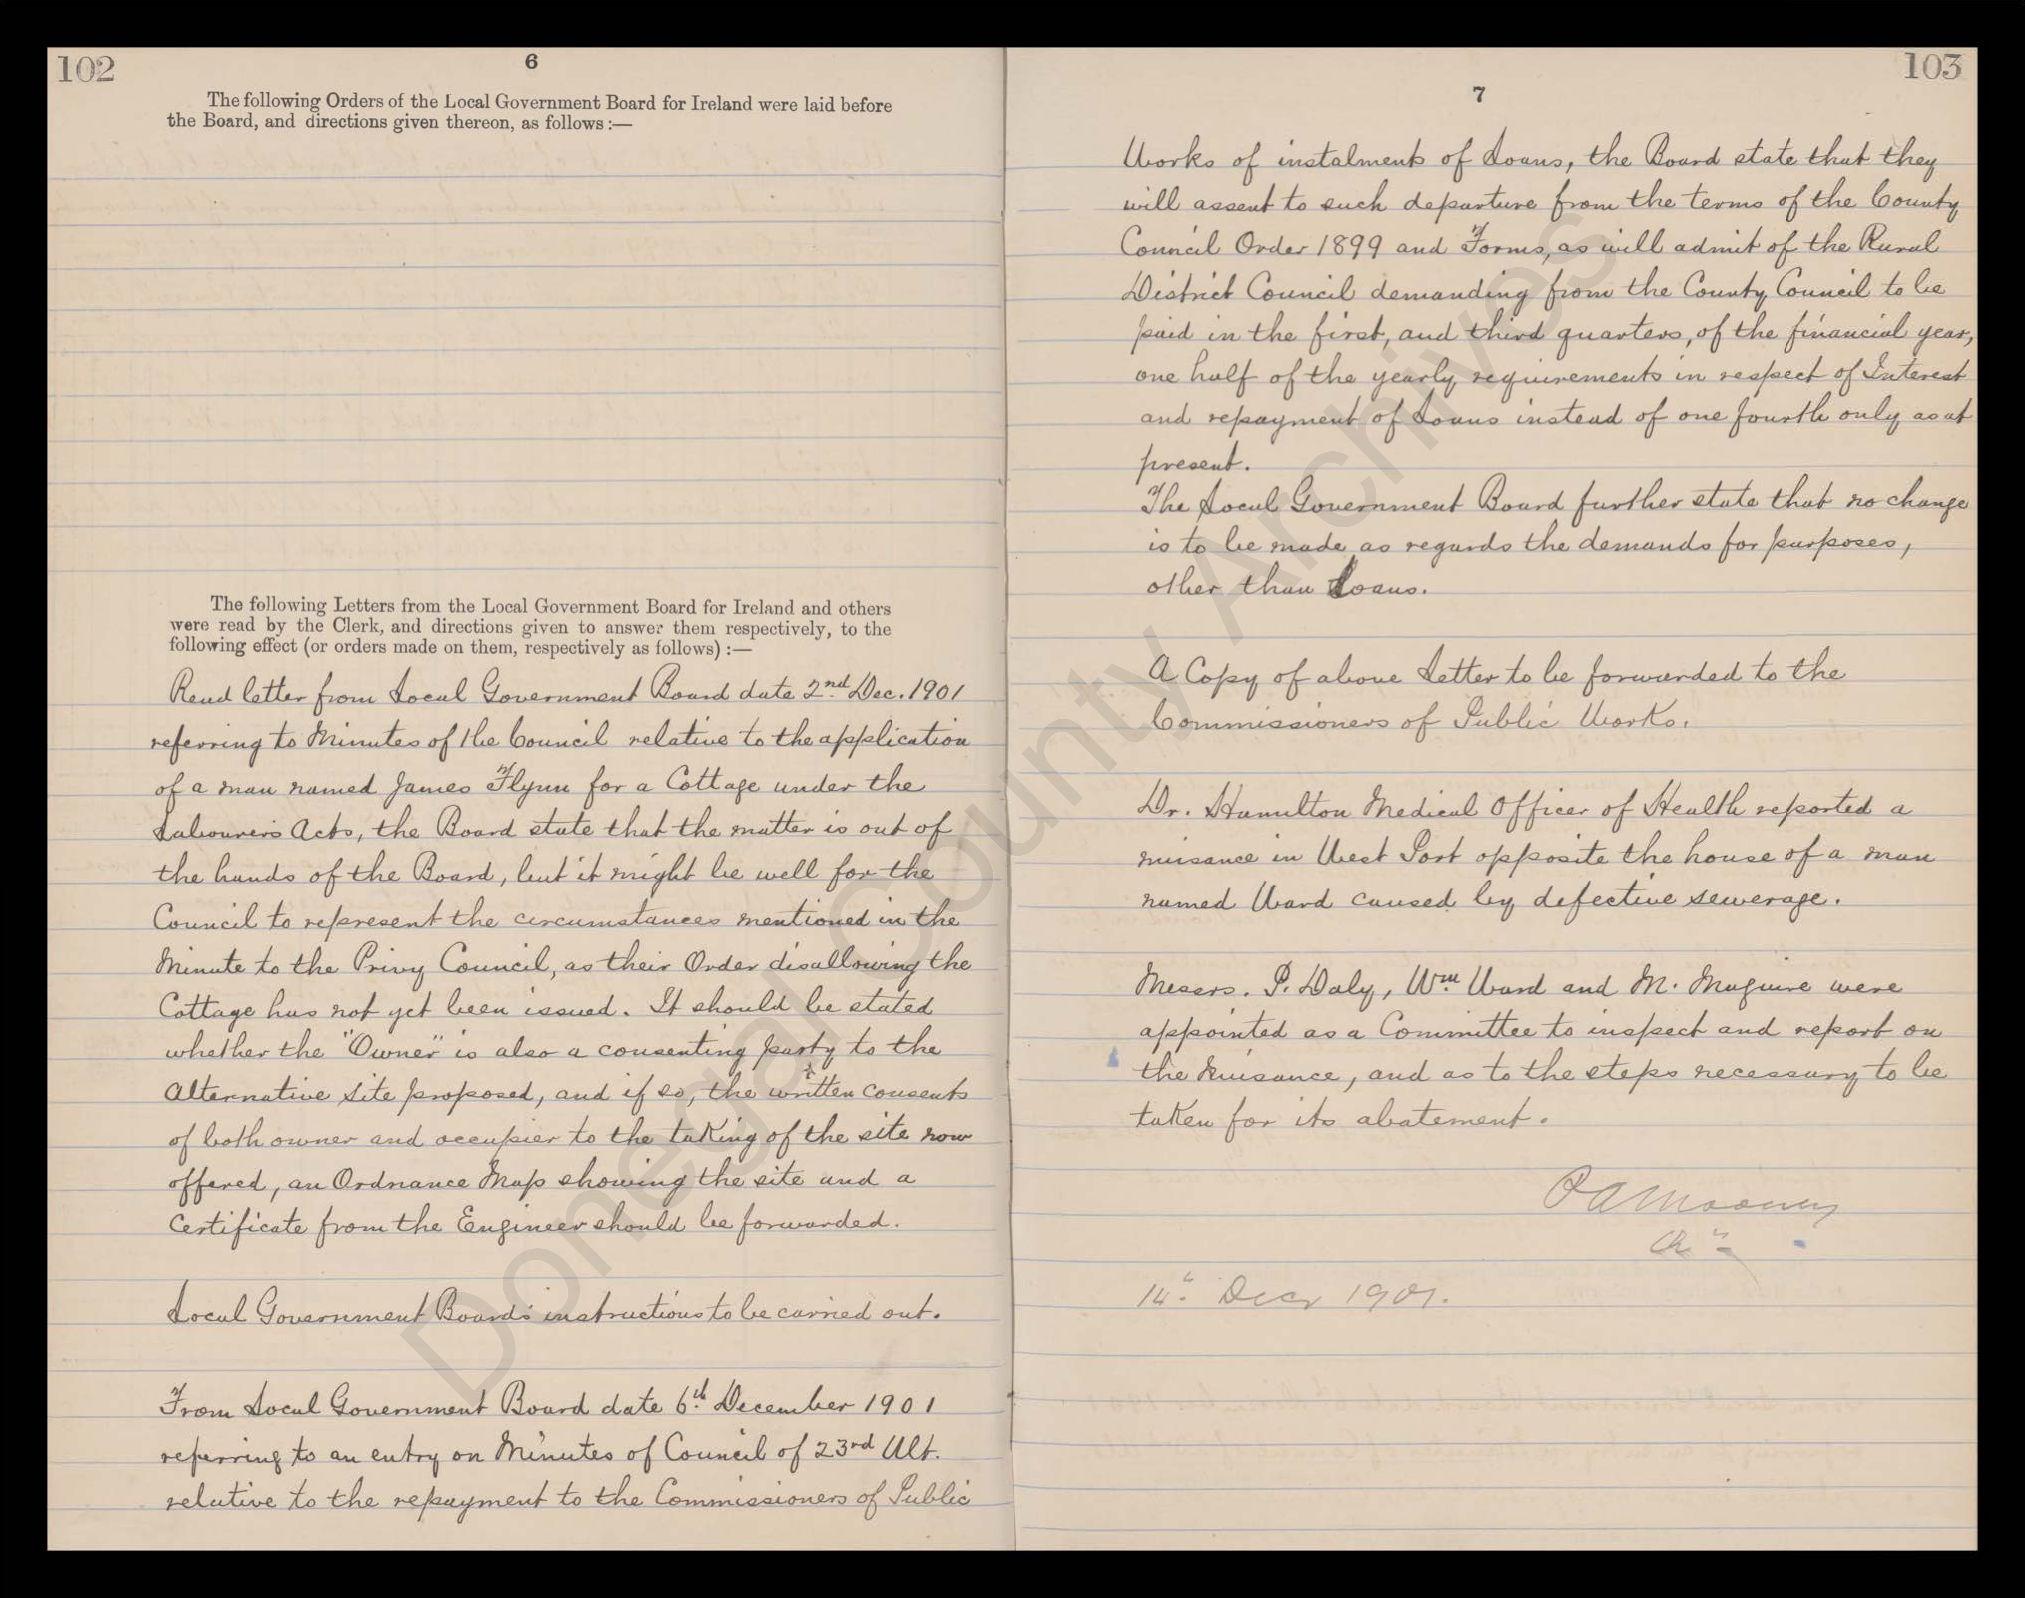 102
6
The following Orders of the Local Government Board for Ireland were laid before
the Board, and directions given thereon, as follows :—
The following Letters from the Local Government Board for Ireland and others
were read by the Clerk, and directions given to answer them respectively, to the
following effect (or orders made on them, respectively as follows) :—
Read letter from Local Government Board date 2nd Dec. 1901
referring to Minutes of the Council relative to the application
of a man named James Flynn for a Cottage under the
Labourers Acts, the Board state that the matter is out of
the hands of the Board, but it might be well for the
Council to represent the circumstances mentioned in the
Minute to the Privy Council, as their Order disallowing the
Cottage has not yet been issued. It should be stated
whether the "Owner" is also a consenting party to the
Alternative Site proposed, and if so, the written consents
of both owner and occupier to the taking of the site now
offered, an Ordnance Map showing the site and a
Certificate from the Engineer should be forwarded.
Local Government Board's instructions to be carried out.
From Local Government Board date 6th December 1901
referring to an entry on Minutes of Council of 23rd Ult.
relative to the repayment to the Commissioners of Public
103
7
Works of instalments of Loans, the Board state that they
will assent to such departure from the terms of the County
Council Order 1899 and Forms, as will admit of the Rural
District Council demanding from the County Council to be
paid in the first, and third quarters, of the financial year,
one half of the yearly requirements in respect of Interest
and repayment of Loans instead of one fourth only as at
present.
The Local Government Board further state that no change
is to be made as regards the demands for purposes,
other than Loans.
A Copy of above Letter to be forwarded to the
Commissioners of Public Works.
Dr. Hamilton Medical Officer of Health reported a
nuisance in West Port opposite the house of a man
named Ward caused by defective sewerage.
Messrs. P. Daly, Wm Ward and M. Maguire were
appointed as a Committee to inspect and report on
the Nuisance, and as to the steps necessary to be
taken for its abatement.
P A Mooney
Chn
14th Decr 1901.
Donegal County Archives